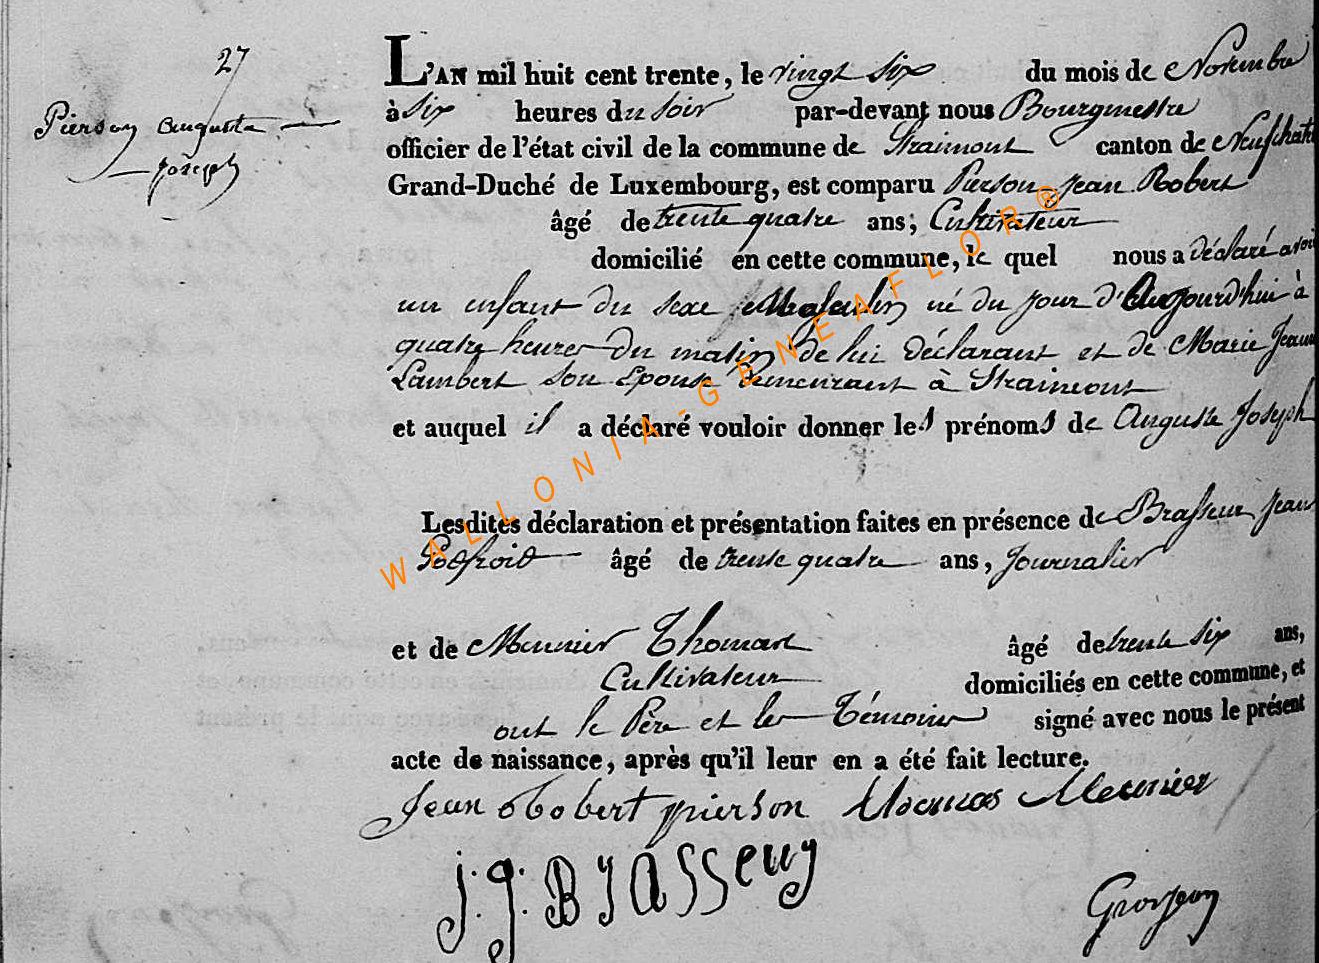 27
Pierson Auguste
Joseph
L'AN mil huit cent trente, le vingt six du mois de Novembre
à six heures du soir par-devant nous Bourgmestre
officier de l'état civil de la commune de Straimont canton de Neufchate
Grand-Duché de Luxembourg, est comparu Pierson Jean Robert
âgé de trente quatre ans, Cultivateur
domicilié en cette commune, le quel nous a déclaré avoir
un enfant du sexe Masculin né du jour d'Aujourd'hui à
quatre heures du matin de lui déclarant et de Marie Jeanne
Lambert son Epouse Demeurant à Straimont
et auquel il a déclaré vouloir donner les prénoms de Auguste Joseph
Lesdites déclaration et présentation faites en présence de Brasseur Jean
Godfroid âgé de trente quatre ans, Journalier
et de Meunier Thomas âgé de trente six ans,
Cultivateur domiciliés en cette commune, et
ont le Père et les Témoins signé avec nous le présent
acte de naissance, après qu'il leur en a été fait lecture.
Jean Robert pierson Thomas Meunier
J: g: BrASSeur
Grosjean
WALLONIA-GENEAFLOR®